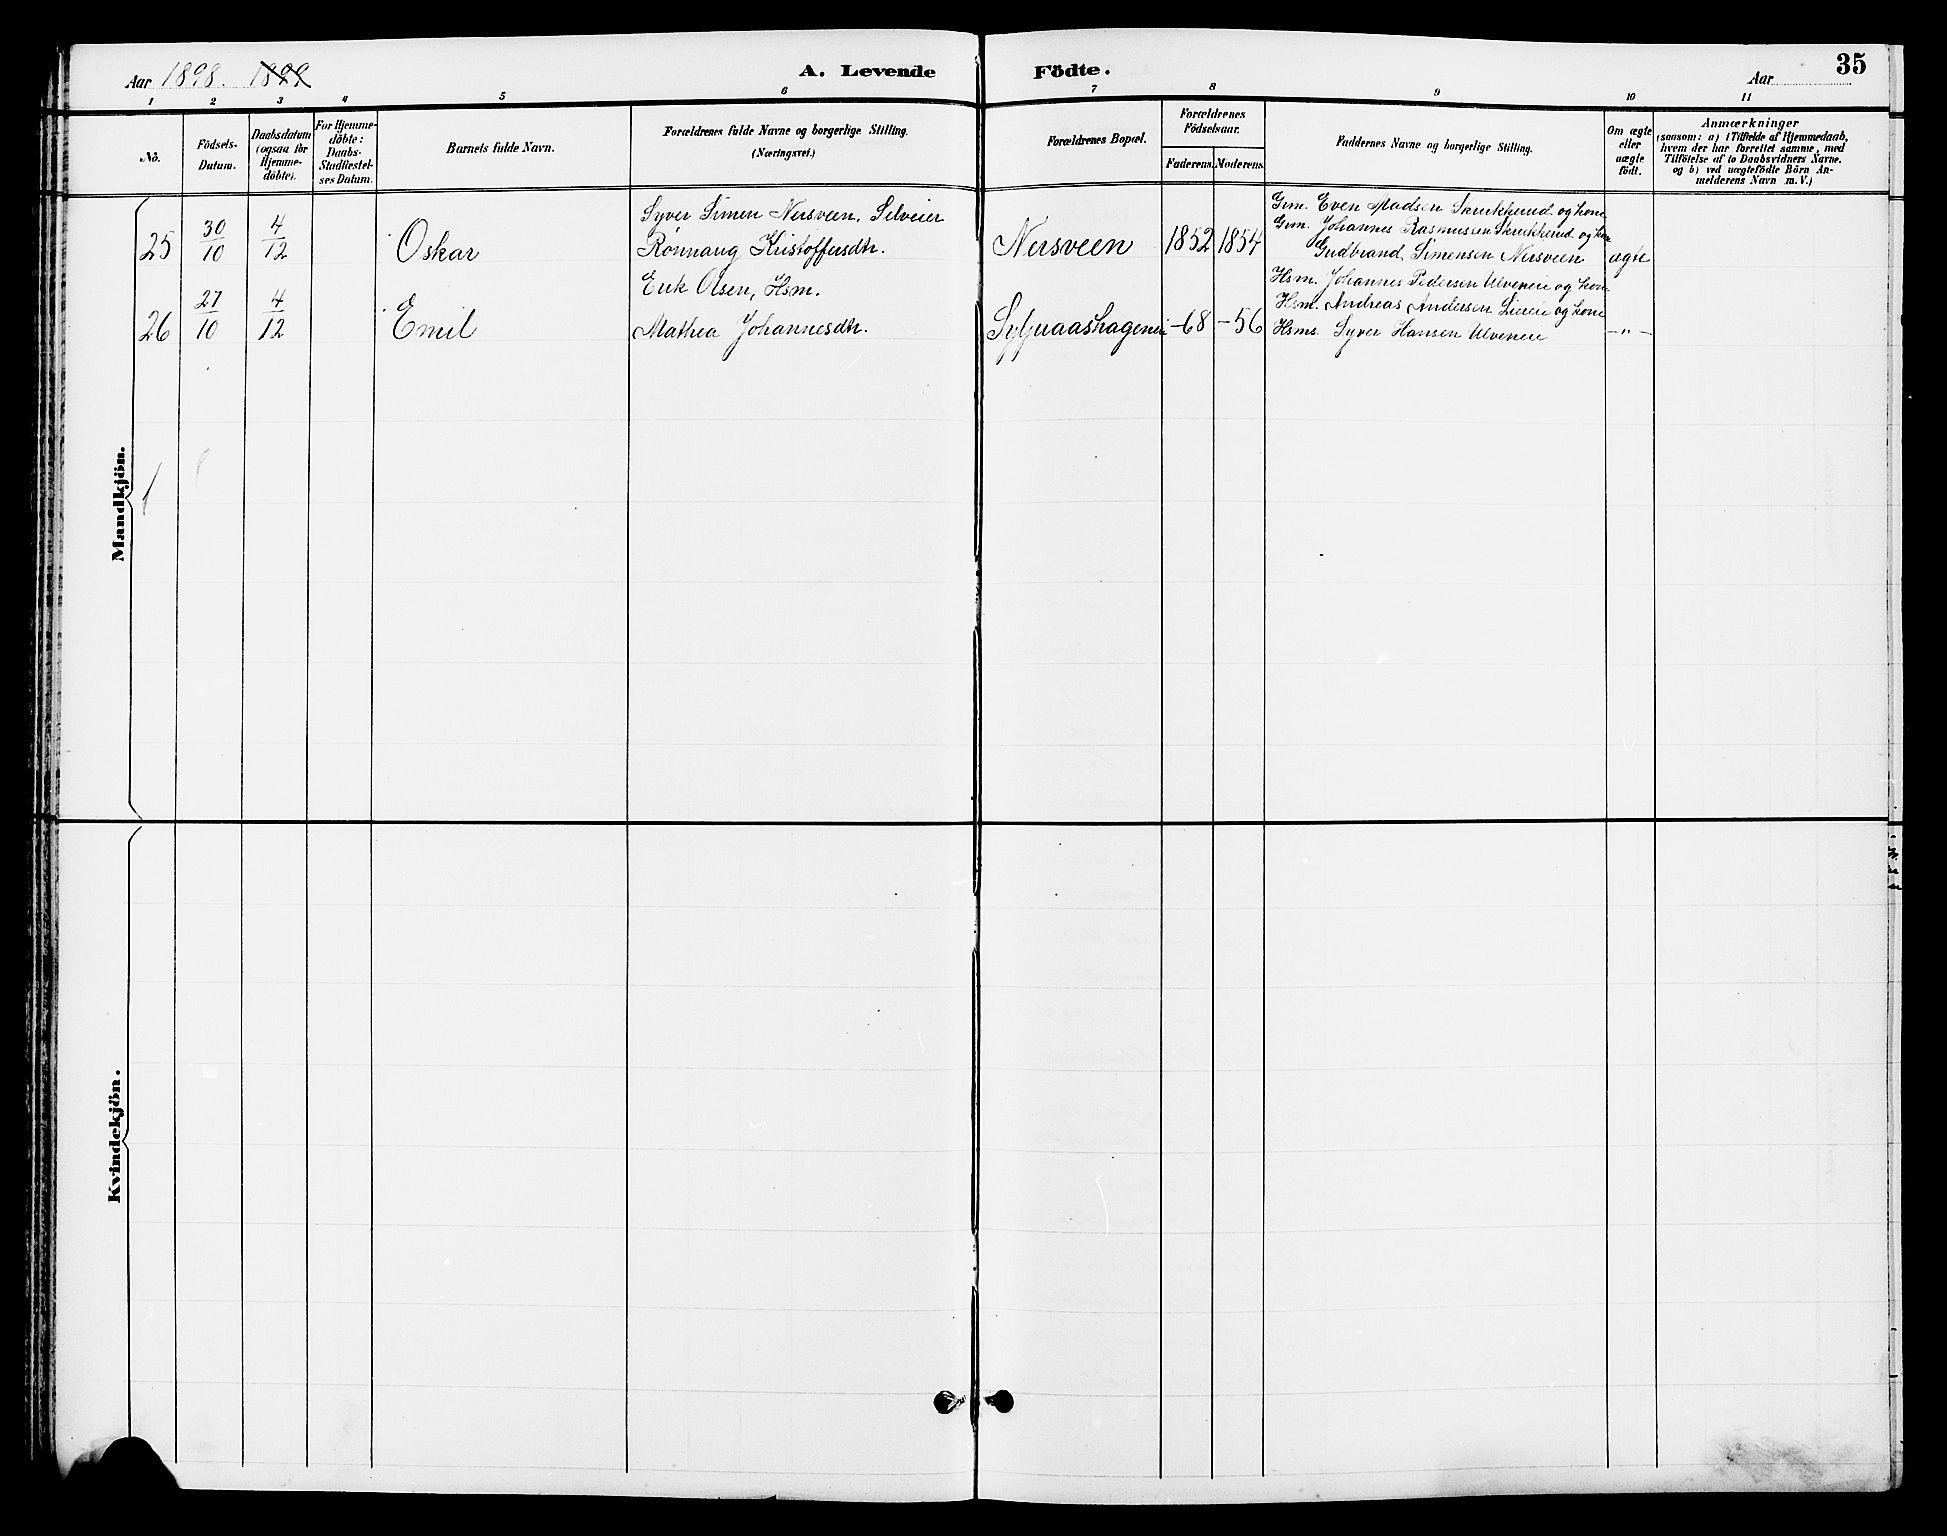 Aar 1898. 1899
A. Levende Födte.
Aar
35
1 2 3 4 5 6 7 8 9 10 11
No.
Födsels-
Datum.
Daabsdatum
(ogsaa for
Hjemme-
döbte).
For Hjemme-
döbte:
Daabs-
Stadfæstel-
ses Datum.
Barnets fulde Navn.
Forældrenes fulde Navne og borgerlige Stilling.
(Næringsvei.)
Forældrenes Bopæl.
Forældrenes
Födselsaar.
Faderens. Moderens.
Faddernes Navne og borgerlige Stilling.
Om ægte
eller
uægte
födt.
Anmærkninger
(saasom: a) i Tilfælde af Hjemmedaab,
hvem der har forrettet samme, med
Tilföielse af to Daabsvidners Navne.
og b) ved uægtefödte Börn An-
melderens Navn m. V.)
Mandkjön.
25 30/10 4/12 Oskar
Syver Simen Nersveen, Selveier
Rønnaug Kristoffersdtr.
Nersveen 1852 1854
Grm. Even Madsen Skrukkerud og kone
Grm. Johannes Rasmussen Skrukkerud og kone
Gudbrand Simensen Nersveen ægte
26 27/10 4/12 Emil
Erik Olsen, Hsm.
Mathea Johannesdtr.
-68 -56
Hsm. Johannes Pedersen Ulveneie og kone
Hsm. Andreas Andersen Lieeie og kone
Hsms. Syver Hansen Ulveneie -"-
Kvindekjön.